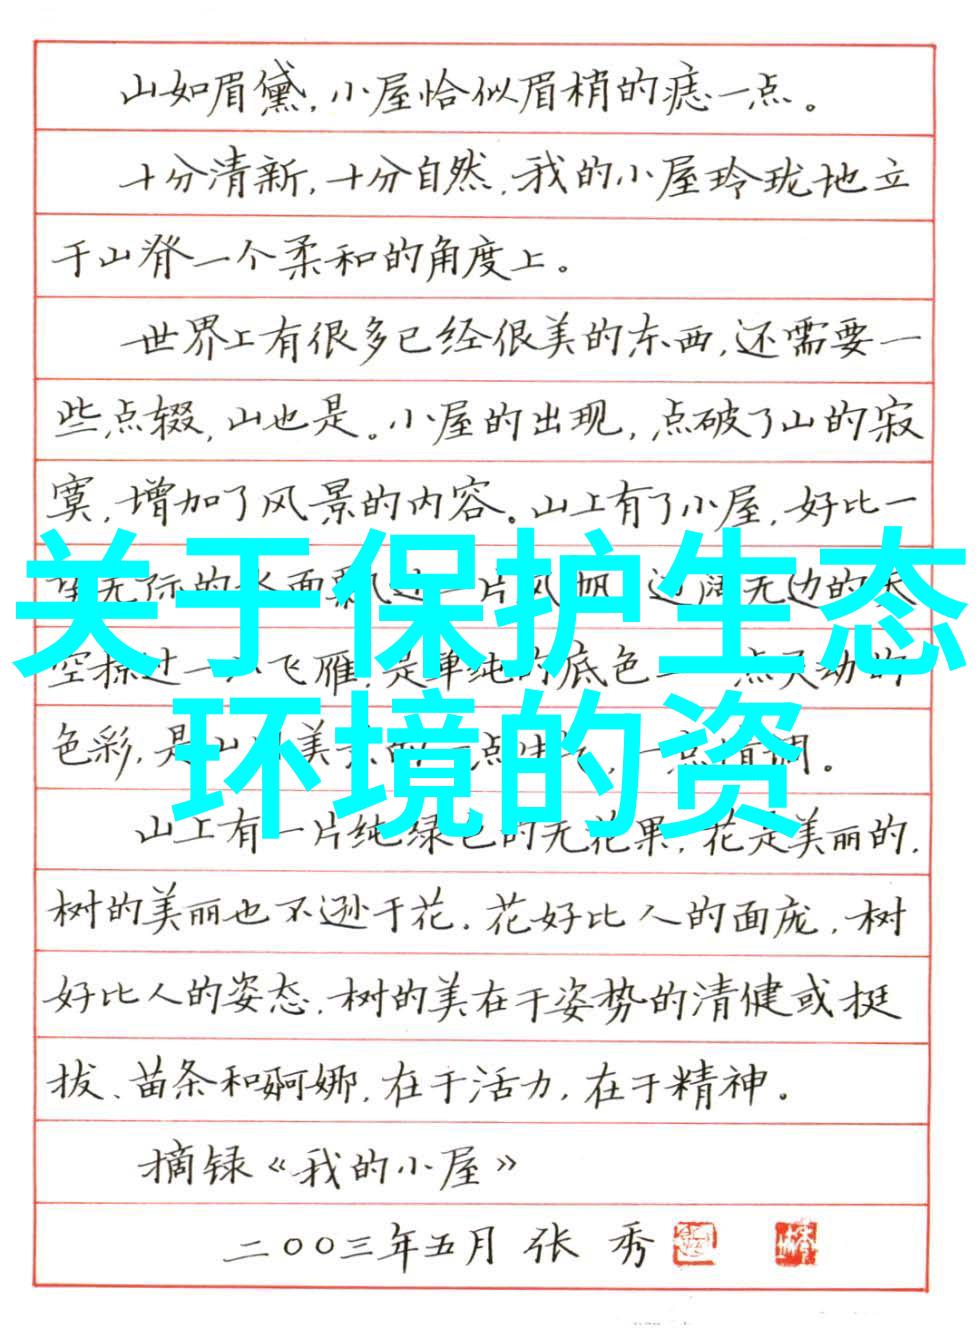 山如眉黛,小屋恰似眉梢的痣一点。
十分清新,十分自然,我的小屋玲珑地立
于山脊一个柔和的角度上。
世界上有很多已经很美的东西,还需要一
些点缀,山也是。小屋的出现,点破了山的寂
寞,增加了风景的内容。山上有了小屋,好比一
关于保护生态
环境的资
空掠过一 飞雁,是单纯的底色 一点灵动的
色彩,是山 美 的一点 ,一点情调。
山上有一片纯绿色的无花果,花是美丽的,
树的美丽也不逊于花。花好比人的面庞,树
好比人的姿态。树的美在于姿势的清健或挺
拔、苗条和婀娜,在于活力,在于精神。
摘录《我的小屋》
二〇〇三年五月 张 秀